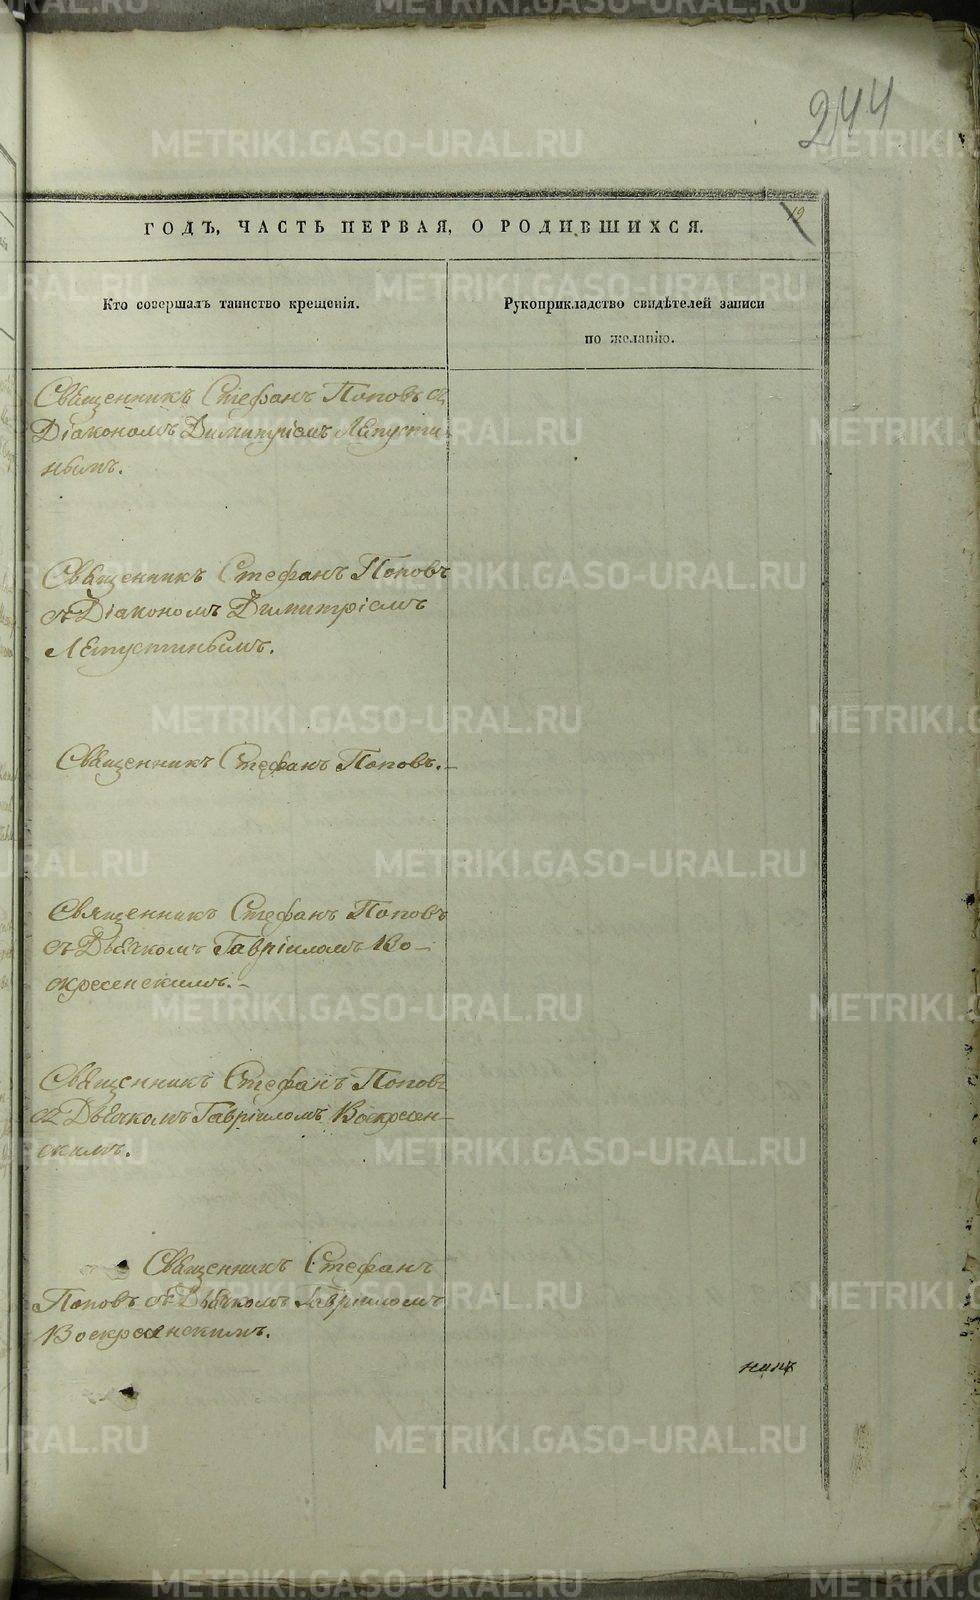 244
19
ГОДЪ, ЧАСТЬ ПЕРВАЯ, О РОДИВШИХСЯ.
Кто совершалъ таинство крещенія.
Рукоприкладство свидѣтелей записи
по желанію.
Священникъ Стефанъ Поповъ съ
Діакономъ Димитріемъ Лепусти-
нымъ.
Священникъ Стефанъ Поповъ
съ Діакономъ Димитріемъ
Лепустинымъ.
Священникъ Стефанъ Поповъ.
Священникъ Стефанъ Поповъ
съ Дьячкомъ Гавріиломъ Во-
скресенскимъ.
Священникъ Стефанъ Поповъ
съ Дьячкомъ Гавріиломъ Воскресен-
скимъ.
Священникъ Стефанъ
Поповъ съ Дьячкомъ Гавріиломъ
Воскресенскимъ.
METRIKI.GASO-URAL.RU